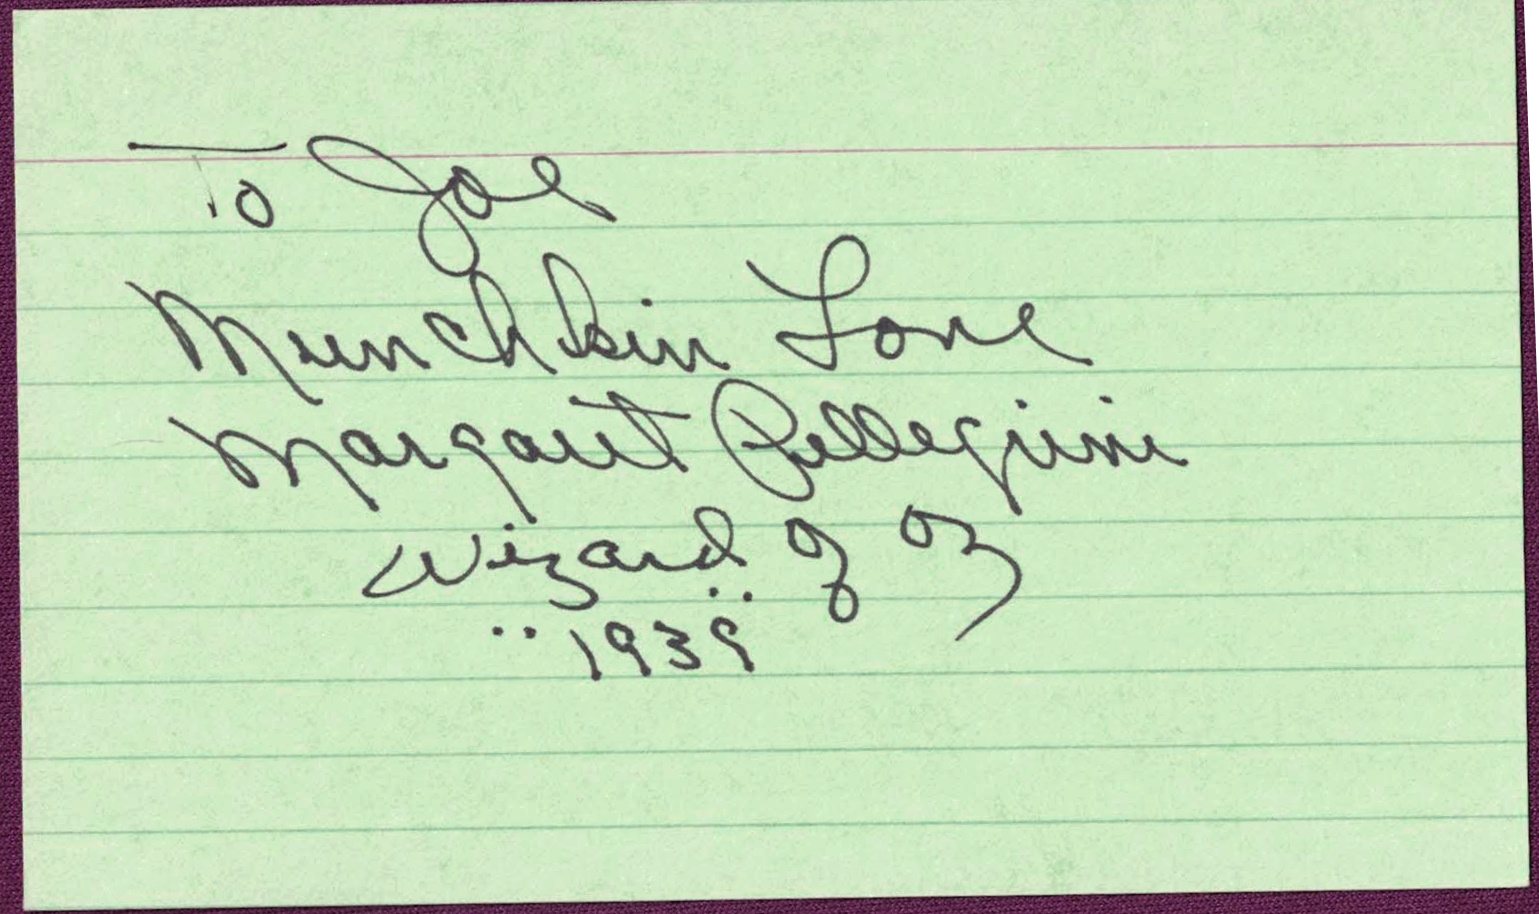 To Joe
Munchkin Love
Margaret Pellegrini
Wizard of Oz
"1939"